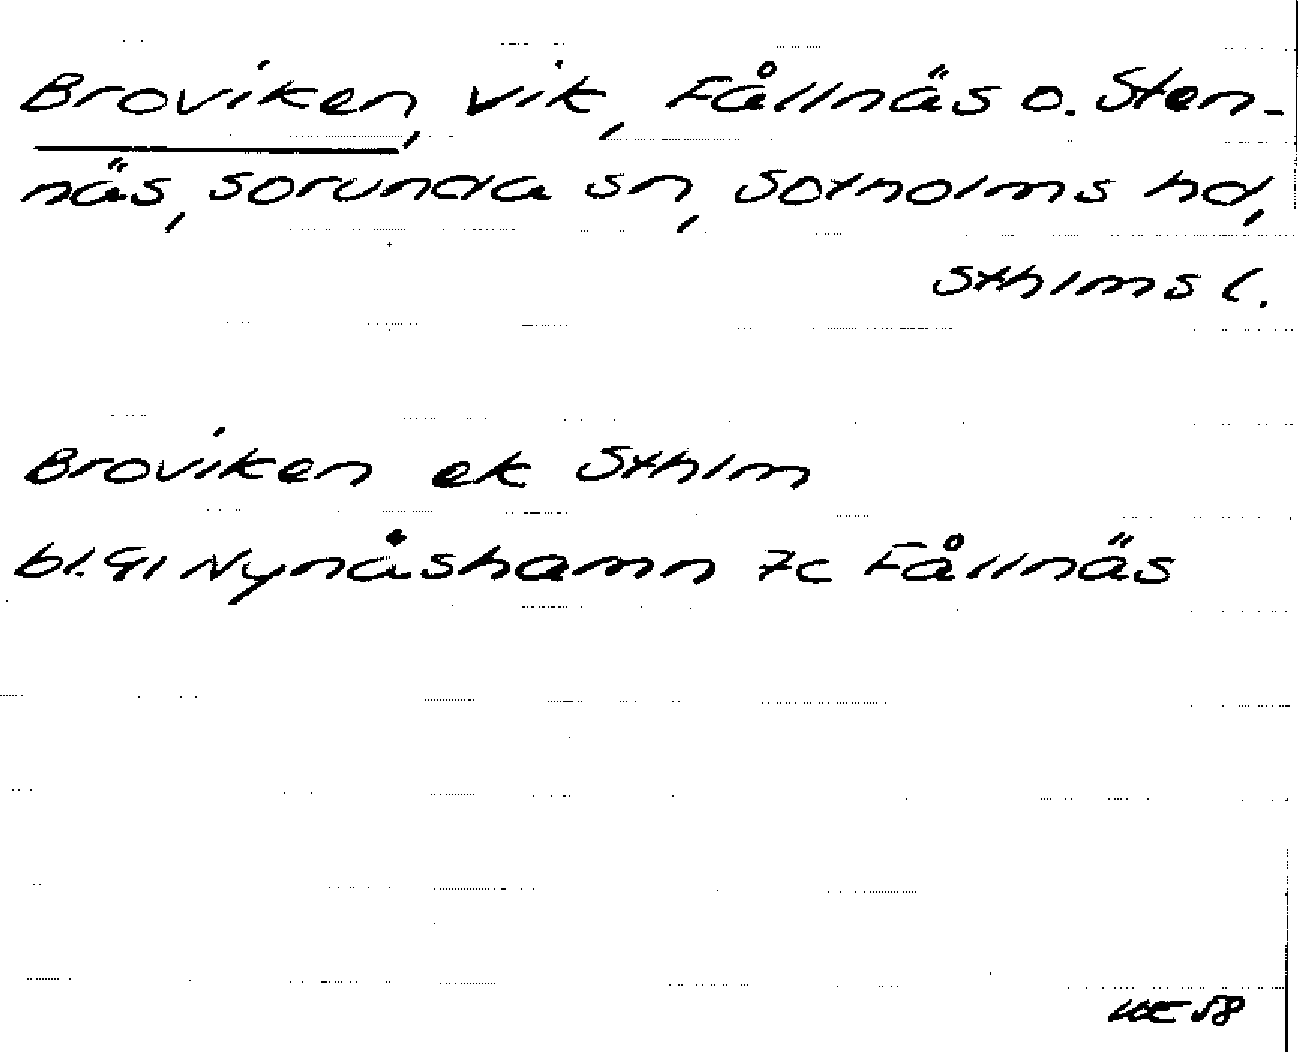 Broviken, vik, Fållnäs o. Sten-
näs, Sorunda sn, Sotholms hd,
Sthlms l.
Broviken ek Sthlm
bl. 91 Nynäshamn 7c Fållnäs
58